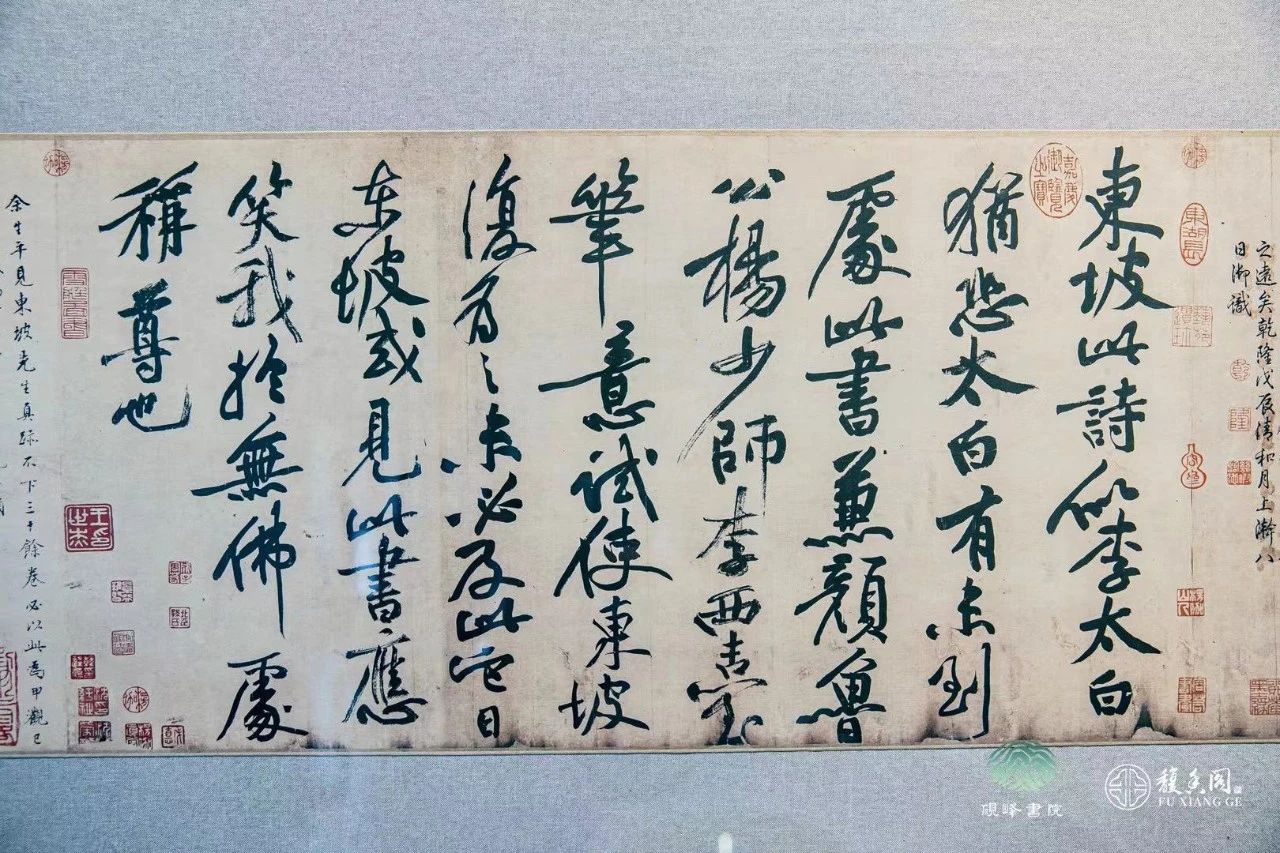 之遠矣乾隆戊辰清和月上澣八
日御識
東坡此詩似李太白
猶恐太白有未到
處此書兼顏魯
公楊少師李西臺
筆意試使東坡
復為之未必及此它日
東坡或見此書應
笑我於無佛處
稱尊也
余生平見東坡先生真跡不下三十餘卷必以此為甲觀已
嘉慶御覽之寶
東湖長
乾
隆
硯峰書院
馥香阁
FU XIANG GE